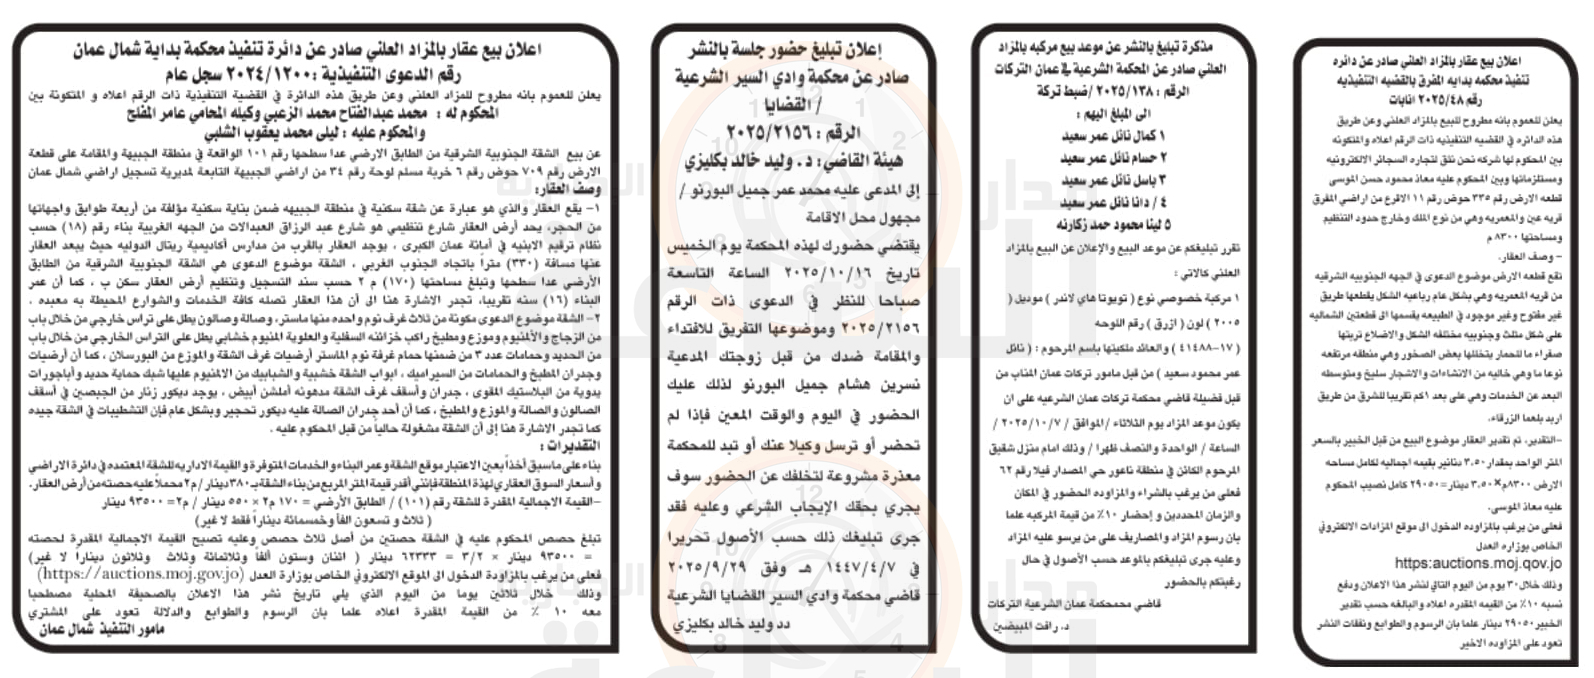 اعلان بيع عقار بالمزاد العلني صادر عن دائره
تنفيذ محكمه بدايه المفرق بالقضيه التنفيذيه
رقم ٢٠٢٥/٤٨ انابات
يعلن للعموم بانه مطروح للبيع بالمزاد العلني وعن طريق
هذه الدائره في القضيه التنفيذيه ذات الرقم اعلاه والمتكونه
بين المحكوم لها شركه نحن نثق لتجاره السجائر الالكترونيه
ومستلزماتها وبين المحكوم عليه معاذ محمود حسن الموسى
قطعه الارض رقم ٣٣٥ حوض رقم ١١ الاقرع من اراضي المفرق
قريه عين والمعمريه وهي من نوع الملك وخارج حدود التنظيم
ومساحتها ٨٣٠٠ م
- وصف العقار.
تقع قطعه الارض موضوع الدعوى في الجهه الجنوبيه الشرقيه
من قريه المعمريه وهي بشكل عام رباعيه الشكل يقطعها طريق
غير مفتوح وغير موجود في الطبيعه يقسمها الى قطعتين الشماليه
على شكل مثلث وجنوبيه مختلفه الشكل والاضلاع تربتها
صفراء ما للحمار يتخللها بعض الصخور وهي منطقه مرتفعه
نوعا ما وهي خاليه من الانشاءات والاشجار سليخ ومتوسطه
البعد عن الخدمات وهي على بعد ١كم تقريبا للشرق من طريق
اربد بلعما الزرقاء.
-التقدير، تم تقدير العقار موضوع البيع من قبل الخبير بالسعر
المتر الواحد بمقدار ٣.٥٠ دنانير بقيمه اجماليه لكامل مساحه
الارض ٨٣٠٠م×٣.٥٠ دينار=٢٩٠٥٠ كامل نصيب المحكوم
عليه معاذ الموسى.
فعلى من يرغب بالمزاوده الدخول الى موقع المزادات الالكتروني
الخاص بوزاره العدل
https:auctions.moj.qov.jo
وذلك خلال٣٠ يوم من اليوم التالي لنشر هذا الاعلان ودفع
نسبه ١٠٪ من القيمه المقدره اعلاه والبالغه حسب تقدير
الخبير ٢٩٠٥٠ دينار علما بان الرسوم والطوابع ونفقات النشر
تعود على المزاوده الاخير
مذكرة تبليغ بالنشر عن موعد بيع مركبه بالمزاد
العلني صادر عن المحكمة الشرعية في عمان التركات
الرقم : ٢٠٢٥/١٣٨ /ضبط تركة
الى المبلغ اليهم :
١ كمال نائل عمر سعيد
٢ حسام نائل عمر سعيد
٣ باسل نائل عمر سعيد
٤ / دانا نائل عمر سعيد
٥ لينا محمود حمد زكارنه
تقرر تبليغكم عن موعد البيع والإعلان عن البيع بالمزاد
العلني كالاتي :
١ مركبة خصوصي نوع ( تويوتا هاي لاندر ) موديل (
٢٠٠٥ ) لون ( ازرق ) رقم اللوحه
( ١٧-٤١٤٨٨ ) والعائد ملكيتها باسم المرحوم : ( نائل
عمر محمود سعيد ) من قبل مامور تركات عمان المناب من
قبل فضيلة قاضي محكمة تركات عمان الشرعيه على ان
يكون موعد المزاد يوم الثلاثاء /الموافق / ٢٠٢٥/١٠/٧ /
الساعة / الواحدة والنصف ظهرا / وذلك امام منزل شقيق
المرحوم الكائن في منطقة ناعور حي المصدار فيلا رقم ٦٢
فعلى من يرغب بالشراء والمزاوده الحضور في المكان
والزمان المحددين و إحضار ١٠٪ من قيمة المركبه علما
بان رسوم المزاد والمصاريف على من يرسو عليه المزاد
وعليه جرى تبليغكم بالموعد حسب الأصول في حال
رغبتكم بالحضور
قاضي محمحكمة عمان الشرعية التركات
د. رافت المبيضين
إعلان تبليغ حضور جلسة بالنشر
صادر عن محكمة وادي السير الشرعية
/ القضايا
الرقم : ٢٠٢٥/٢١٥٦
هيئة القاضي: د . وليد خالد بكليزي
إلى المدعى عليه محمد عمر جميل البورنو /
مجهول محل الاقامة
يقتضي حضورك لهذه المحكمة يوم الخميس
تاريخ ٢٠٢٥/١٠/١٦ الساعة التاسعة
صباحا للنظر في الدعوى ذات الرقم
٢٠٢٥/٢١٥٦ وموضوعها التفريق للافتداء
والمقامة ضدك من قبل زوجتك المدعية
نسرين هشام جميل البورنو لذلك عليك
الحضور في اليوم والوقت المعين فإذا لم
تحضر أو ترسل وكيلا عنك أو تبد للمحكمة
معذرة مشروعة لتخلفك عن الحضور سوف
يجري بحقك الإيجاب الشرعي وعليه فقد
جرى تبليغك ذلك حسب الأصول تحريرا
في ١٤٤٧/٤/٧ هـ وفق ٢٠٢٥/٩/٢٩
قاضي محكمة وادي السير القضايا الشرعية
دد وليد خالد بكليزي
اعلان بيع عقار بالمزاد العلني صادر عن دائرة تنفيذ محكمة بداية شمال عمان
رقم الدعوى التنفيذية :٢٠٢٤/١٢٠٠ سجل عام
يعلن للعموم بانه مطروح للمزاد العلني وعن طريق هذه الدائرة في القضية التنفيذية ذات الرقم اعلاه و المتكونة بين
المحكوم له : محمد عبدالفتاح محمد الزعبي وكيله المحامي عامر المفلح
والمحكوم عليه : ليلى محمد يعقوب الشلبي
عن بيع الشقة الجنوبية الشرقية من الطابق الارضي عدا سطحها رقم ١٠١ الواقعة في منطقة الجبيهة والمقامة على قطعة
الارض رقم ٧٠٩ حوض رقم ٦ خربة مسلم لوحة رقم ٣٤ من اراضي الجبيهة التابعة لمديرية تسجيل اراضي شمال عمان
وصف العقار:
١- يقع العقار والذي هو عبارة عن شقة سكنية في منطقة الجبيهه ضمن بناية سكنية مؤلفة من أربعة طوابق واجهاتها
من الحجر، يحد أرض العقار شارع تنظيمي هو شارع عبد الرزاق العبدالات من الجهه الغربية بناء رقم (١٨) حسب
نظام ترقيم الابنيه في أمانة عمان الكبرى ، يوجد العقار بالقرب من مدارس أكاديمية ريتال الدوليه حيث يبعد العقار
عنها مسافة (٣٣٠) متراً باتجاه الجنوب الغربي ، الشقة موضوع الدعوى هي الشقة الجنوبية الشرقية من الطابق
الأرضي عدا سطحها وتبلغ مساحتها (١٧٠) م ٢ حسب سند التسجيل وتنظيم أرض العقار سكن ب ، كما أن عمر
البناء (١٦) سنه تقريبا، تجدر الاشارة هنا الى أن هذا العقار تصله كافة الخدمات والشوارع المحيطة به معبده .
٢- الشقة موضوع الدعوى مكونة من ثلاث غرف نوم واحده منها ماستر، وصالة وصالون يطل على تراس خارجي من خلال باب
من الزجاج والألمنيوم وموزع ومطبخ راكب خزائنه السفلية والعلوية المنيوم خشابي يطل على التراس الخارجي من خلال باب
من الحديد وحمامات عدد ٣ من ضمنها حمام غرفة نوم الماستر أرضيات غرف الشقة والموزع من البورسلان ، كما أن أرضيات
وجدران المطبخ والحمامات من السيراميك ، ابواب الشقة خشبية والشبابيك من الالمنيوم عليها شبك حماية حديد وأباجورات
يدوية من البلاستيك المقوى ، جدران وأسقف غرف الشقة مدهونه أملشن أبيض ، يوجد ديكور زنار من الجبصين في أسقف
الصالون والصالة والموزع والمطبخ ، كما أن أحد جدران الصالة عليه ديكور تحجير وبشكل عام فإن التشطيبات في الشقة جيده
كما تجدر الاشارة هنا إلى أن الشقة مشغولة حالياً من قبل المحكوم عليه .
التقديرات :
بناء على ماسبق أخذاً بعين الاعتبار موقع الشقة وعمر البناء والخدمات المتوفرة و القيمة الاداريه للشقة المعتمده في دائرة الاراضي
وأسعار السوق العقاري لهذة المنطقة فإنني أقدر قيمة المتر المربع من بناء الشقة بـ ٣٨٠دينار / م٢ محملاً عليه حصته من أرض العقار.
-القيمة الاجمالية المقدرة للشقة رقم (١٠١) / الطابق الأرضي = ١٧٠ م٢ × ٥٥٠ دينار / م٢= ٩٣٥٠٠ دينار
( ثلاث و تسعون الفاً وخمسمائة ديناراً فقط لا غير)
تبلغ حصص المحكوم عليه في الشقة حصتين من أصل ثلاث حصص وعليه تصبح القيمة الاجمالية المقدرة لحصته
= ٩٣٥٠٠ دينار × ٣/٢ = ٦٢٣٣٣ دينار ( اثنان وستون ألفاً وثلاثمائة وثلاث وثلاثون دينارا لا غير)
فعلى من يرغب بالمزاودة الدخول الى الموقع الالكتروني الخاص بوزارة العدل (https://auctions.moj.gov.jo)
وذلك خلال ثلاثين يوما من اليوم الذي يلي تاريخ نشر هذا الاعلان بالصحيفة المحلية مصطحبا
معه ١٠ ٪ من القيمة المقدرة اعلاه علما بان الرسوم والطوابع والدلالة تعود على المشتري
مامور التنفيذ شمال عمان